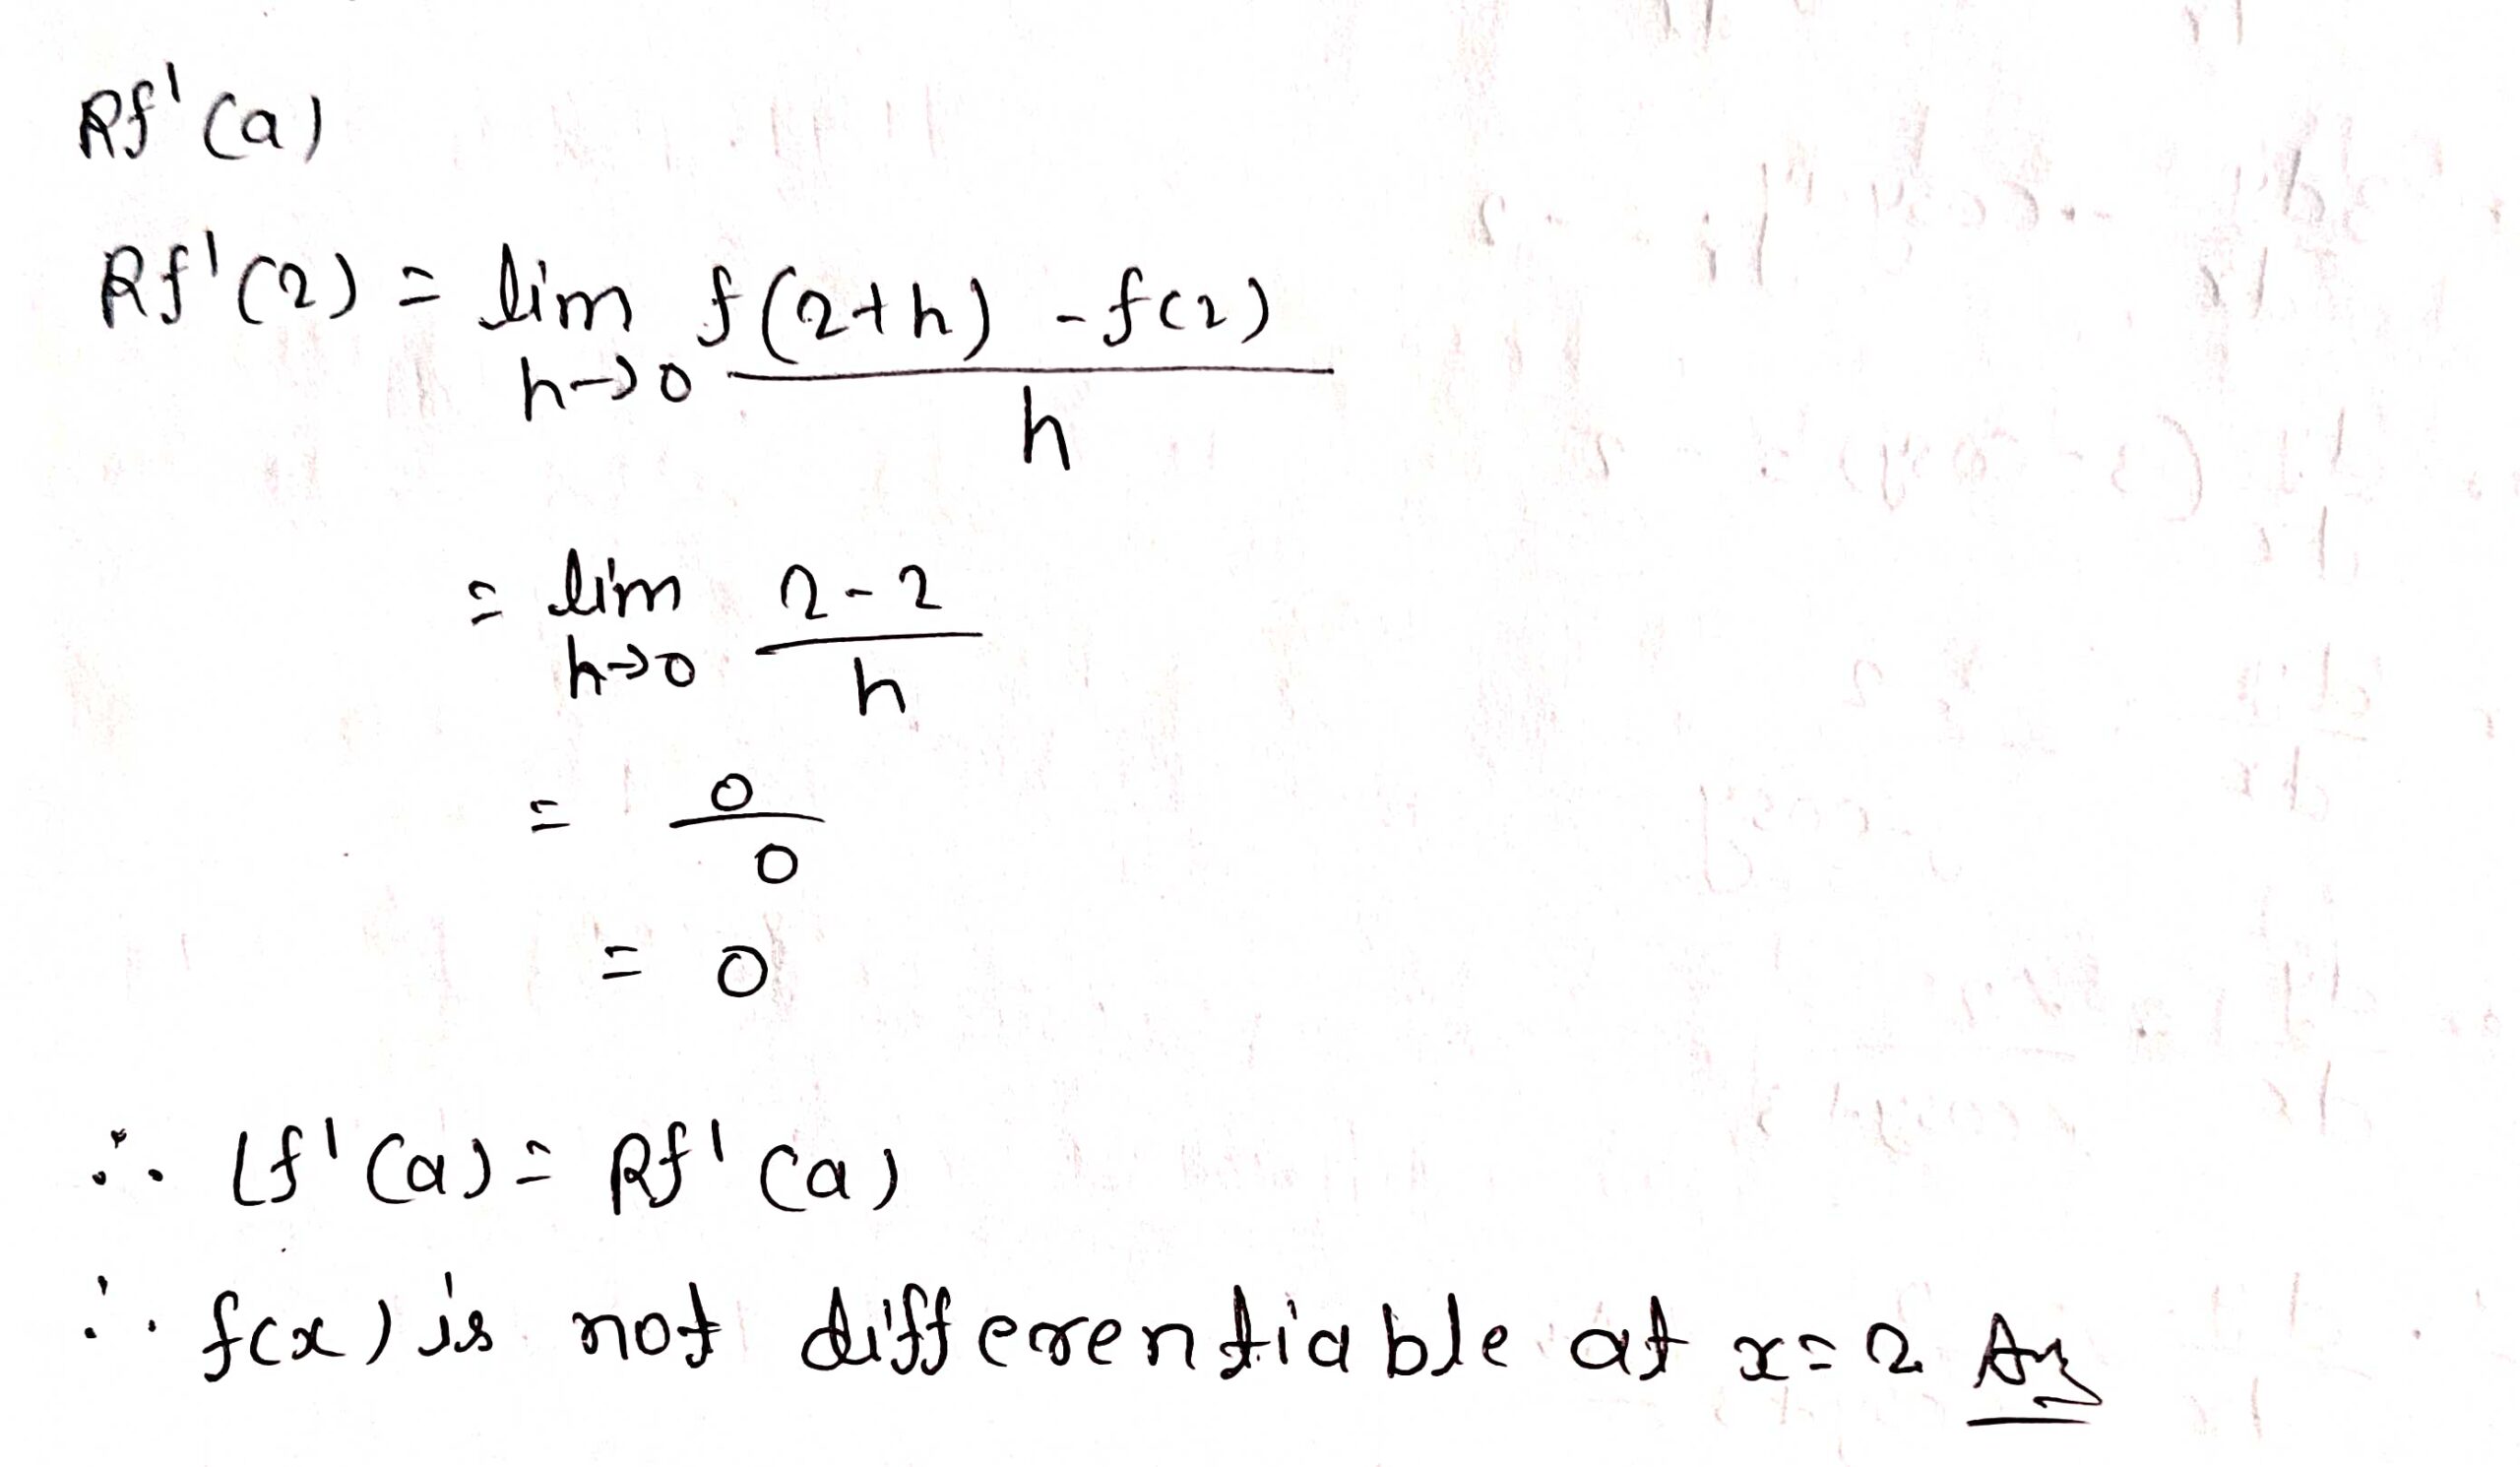 Rf'(a)
Rf'(2) = lim h→0 f(2+h) - f(2) / h
= lim h→0 2-2 / h
= 0 / 0
= 0
∴ Lf'(a) = Rf'(a)
∴ f(x) is not differentiable at x=2 Ans